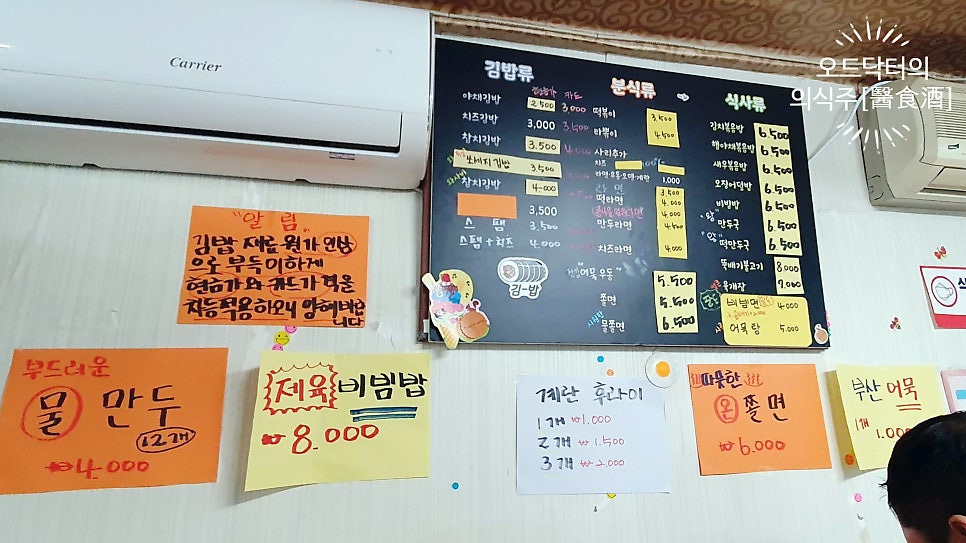 Carrier
오드닥터의
의식주[醫食酒]
김밥류
현금가 카드
야채김밥 2,500 3,000
치즈김밥 3,000 3,500
참치김밥 3,500 4,000
쏘세지김밥 3,500
참치김밥 4,000
3,500
스팸 3,500
스팸+치즈 4,000
김-밥
분식류
떡볶이 3,500
라뽂이 4,500
사리추가
치즈
1,000
라면 3,500
떡라면 4,000
4,000
만두라면 4,500
치즈라면 4,000
어묵우동 5.500
쫄면 5.500
시원한 물쫄면 6.500
식사류
김치볶음밥 6.500
해야채볶음밥 6.500
새우볶음밥 6.500
오징어덮밥 6.500
비빔밥 6.500
"왕" 만두국 6.500
"왕" 떡만두국 6.500
뚝배기불고기 8,000
육개장 7,000
비빔면 4,000
어묵탕 5,000
"알림"
김밥 재료 원가 인상
으로 부득이하게
현금가와 카드가격을
차등적용하오니 양해바랍
니다
부드러운
물만두
12개
₩4,000
제육비빔밥
₩8.000
계란 후라이
1개 ₩1.000
2개 ₩1.500
3개 ₩2,000
따뜻한
온쫄면
₩6.000
부산어묵
1개 1.000